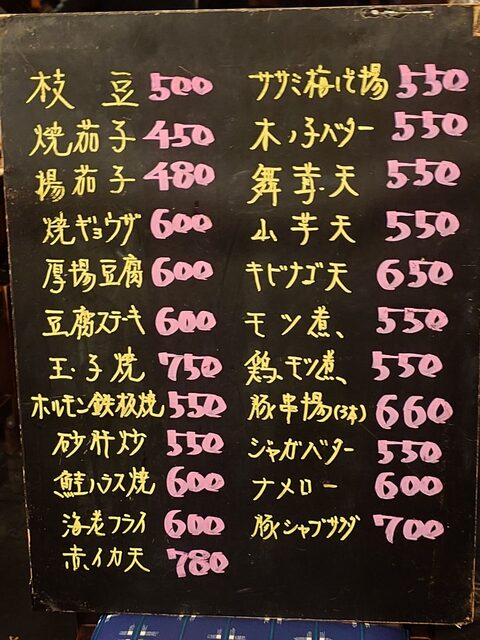 枝豆 500
焼茄子 450
揚茄子 480
焼ギョウザ 600
厚揚豆腐 600
豆腐ステキ 600
玉子焼 750
ホルモン鉄板焼 550
砂肝炒 550
鮭ハラス焼 600
海老フライ 600
赤イカ天 780
ササミ梅しそ揚 550
木ノ子バター 550
舞茸天 550
山芋天 550
キビナゴ天 650
モツ煮 550
鶏モツ煮 550
豚串揚(3本) 660
ジャガバター 550
ナメロー 600
豚シャブサラダ 700